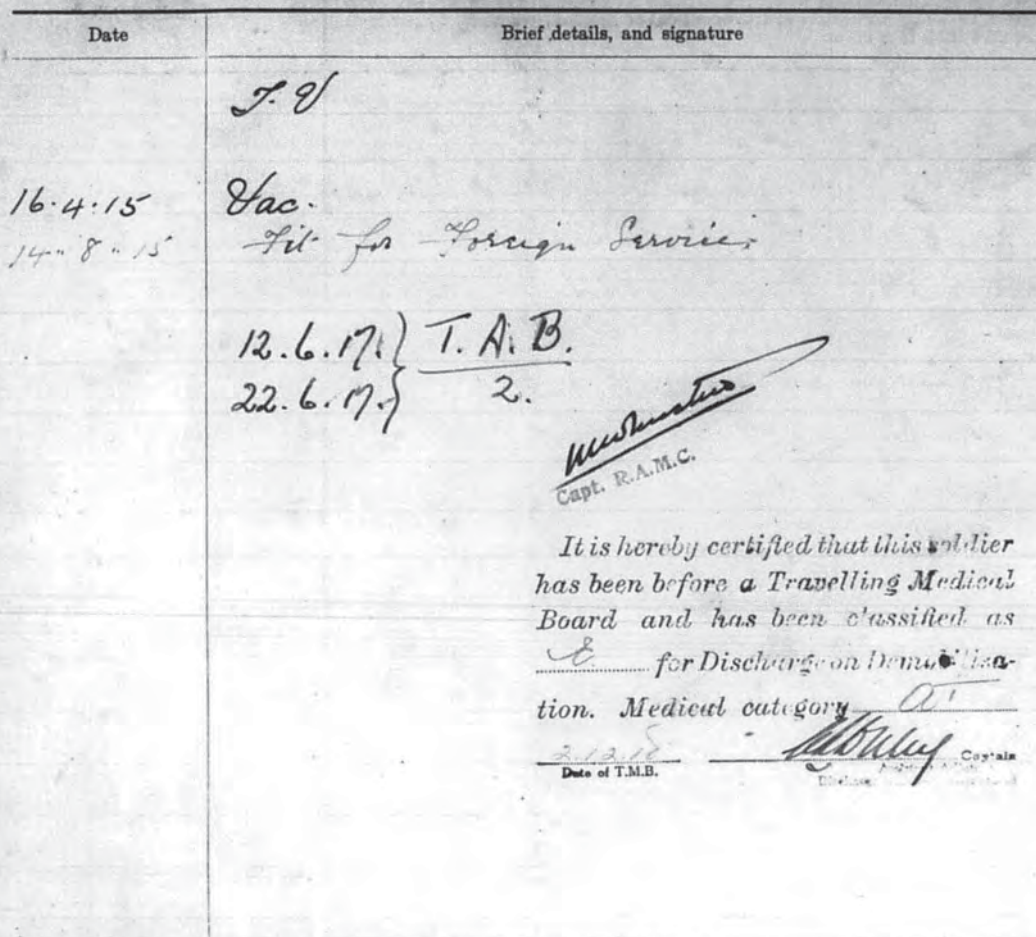 Date Brief details, and signature
T. V
16.4.15 Vac.
14" 8" 15 Fit for Foreign Service.
12.6.17.} T. A. B.
22.6.17.} 2.
Capt. R.A.M.C.
It is hereby certified that this soldier
has been before a Travelling Medical
Board and has been classified as
E for Discharge on Demobiliza-
tion. Medical category A1
2.12.18 Captain
Date of T.M.B.